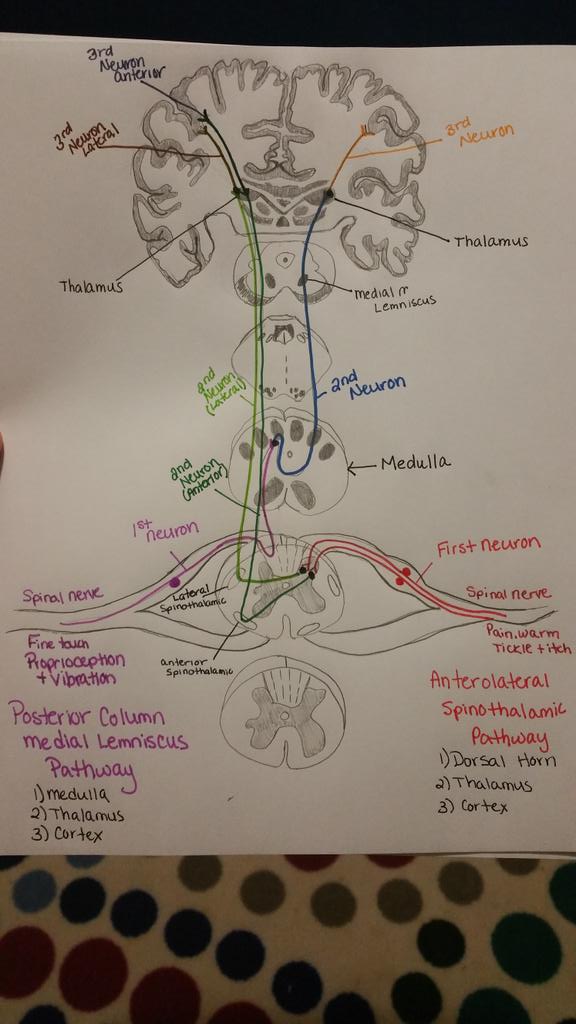 3rd
Neuron
anterior
3rd
Neuron
Lateral
3rd
Neuron
Thalamus
Thalamus
medial
Lemniscus
2nd
Neuron
(Lateral)
2nd
Neuron
Medulla
2nd
Neuron
(Anterior)
1st
neuron
First neuron
Spinal nerve
Lateral
Spinothalamic
Spinal nerve
Fine touch
Proprioception
+ Vibration
anterior
Spinothalamic
Pain, warm
Tickle + itch
Posterior Column
medial Lemniscus
Pathway
1) medulla
2) Thalamus
3) Cortex
Anterolateral
Spinothalamic
Pathway
1) Dorsal Horn
2) Thalamus
3) Cortex